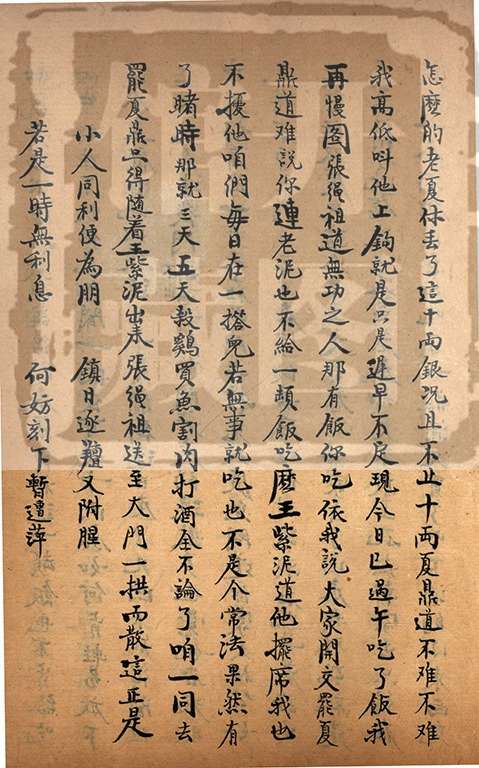 怎麽的老夏休丢了這十両銀况且不止十両夏鼎道不难不难
我高低呌他上鈎就是只是遅早不定現今日已過午吃了飯我
再慢圖張繩祖道無功之人那有飯你吃依我說大家開交罷夏
鼎道难說你連老泥也不給一頓飯吃麽王紫泥道他擺席我也
不擾他咱們每日在一搭児若無事就吃也不是个常法果然有
了賭時那就三天五天殺鷄買魚割肉打酒全不論了咱一同去
罷夏鼎只得隨着王紫泥出来張繩祖送至大門一拱而散這正是
小人同利便為朋 鎮日逐羶又附腥
若是一時無利息 何妨刻下暫遭萍